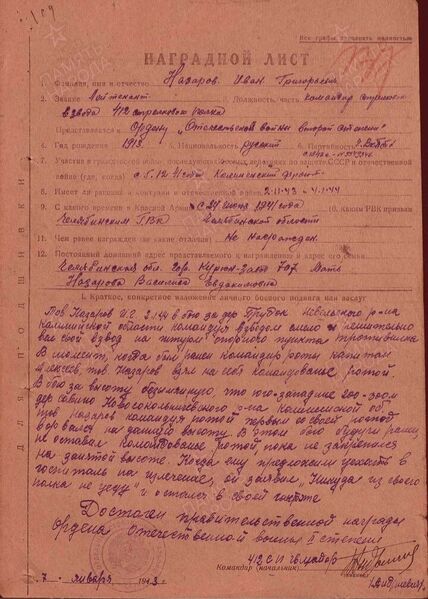 Все графы заполнять полностью
НАГРАДНОЙ ЛИСТ
1. Фамилия, имя и отчество Назаров Иван Григорьевич
2. Звание Лейтенант 3. Должность, часть командир стрелков.
взвода 412 стрелкового полка
Представляется к Ордену "Отечественной войны второй степени"
4. Год рождения 1913 5. Национальность русский 6. Партийность
7. Участие в гражданской войне, последующих боевых действиях по защите СССР и отечественной
войне (где, когда) с 5.12.41 года Калининский фронт
8. Имеет ли ранения и контузии в отечественной войне 2.11.43 - 4.1.44
9. С какого времени в Красной Армии с 24 июня 1941 года 10. Каким РВК призван
Челябинским ГВК Челябинской области
11. Чем ранее награжден (за какие отличия) Не награжден.
12. Постоянный домашний адрес представляемого к награждению и адрес его семьи
Челябинская обл. гор. 707 Мать
Назарова Василиса Евдокимовна
ДЛЯ ПОДШИВКИ
I. Краткое, конкретное изложение личного боевого подвига или заслуг
Тов Назаров И.Г. 2.1.44 в бою за дер Невельского р-на
калининской области командуя взводом смело и решительно
вел свой взвод на штурм опорного пункта противника
В момент, когда был ранен командир роты капитан
Алексеев, тов Назаров взял на себя командование ротой.
В бою за высоту безимянную, что юго-западнее 200-300 м
дер Савино Новосокольнического р-на Калининской об.
тов Назаров командуя ротой первым со своей ротой
ворвался на данную высоту. В этом бою будучи ранен,
не оставил командование ротой, пока не закрепился
на занятой высоте. Когда ему предложили уехать в
госпиталь на излечение, он заявил "Никуда из своего
полка не уеду" и остался в своей
Достоин правительственной награды
Ордена Отечественной войны II степени
Командир (начальник) 412 СП гв. майор
7. января 1943 г.